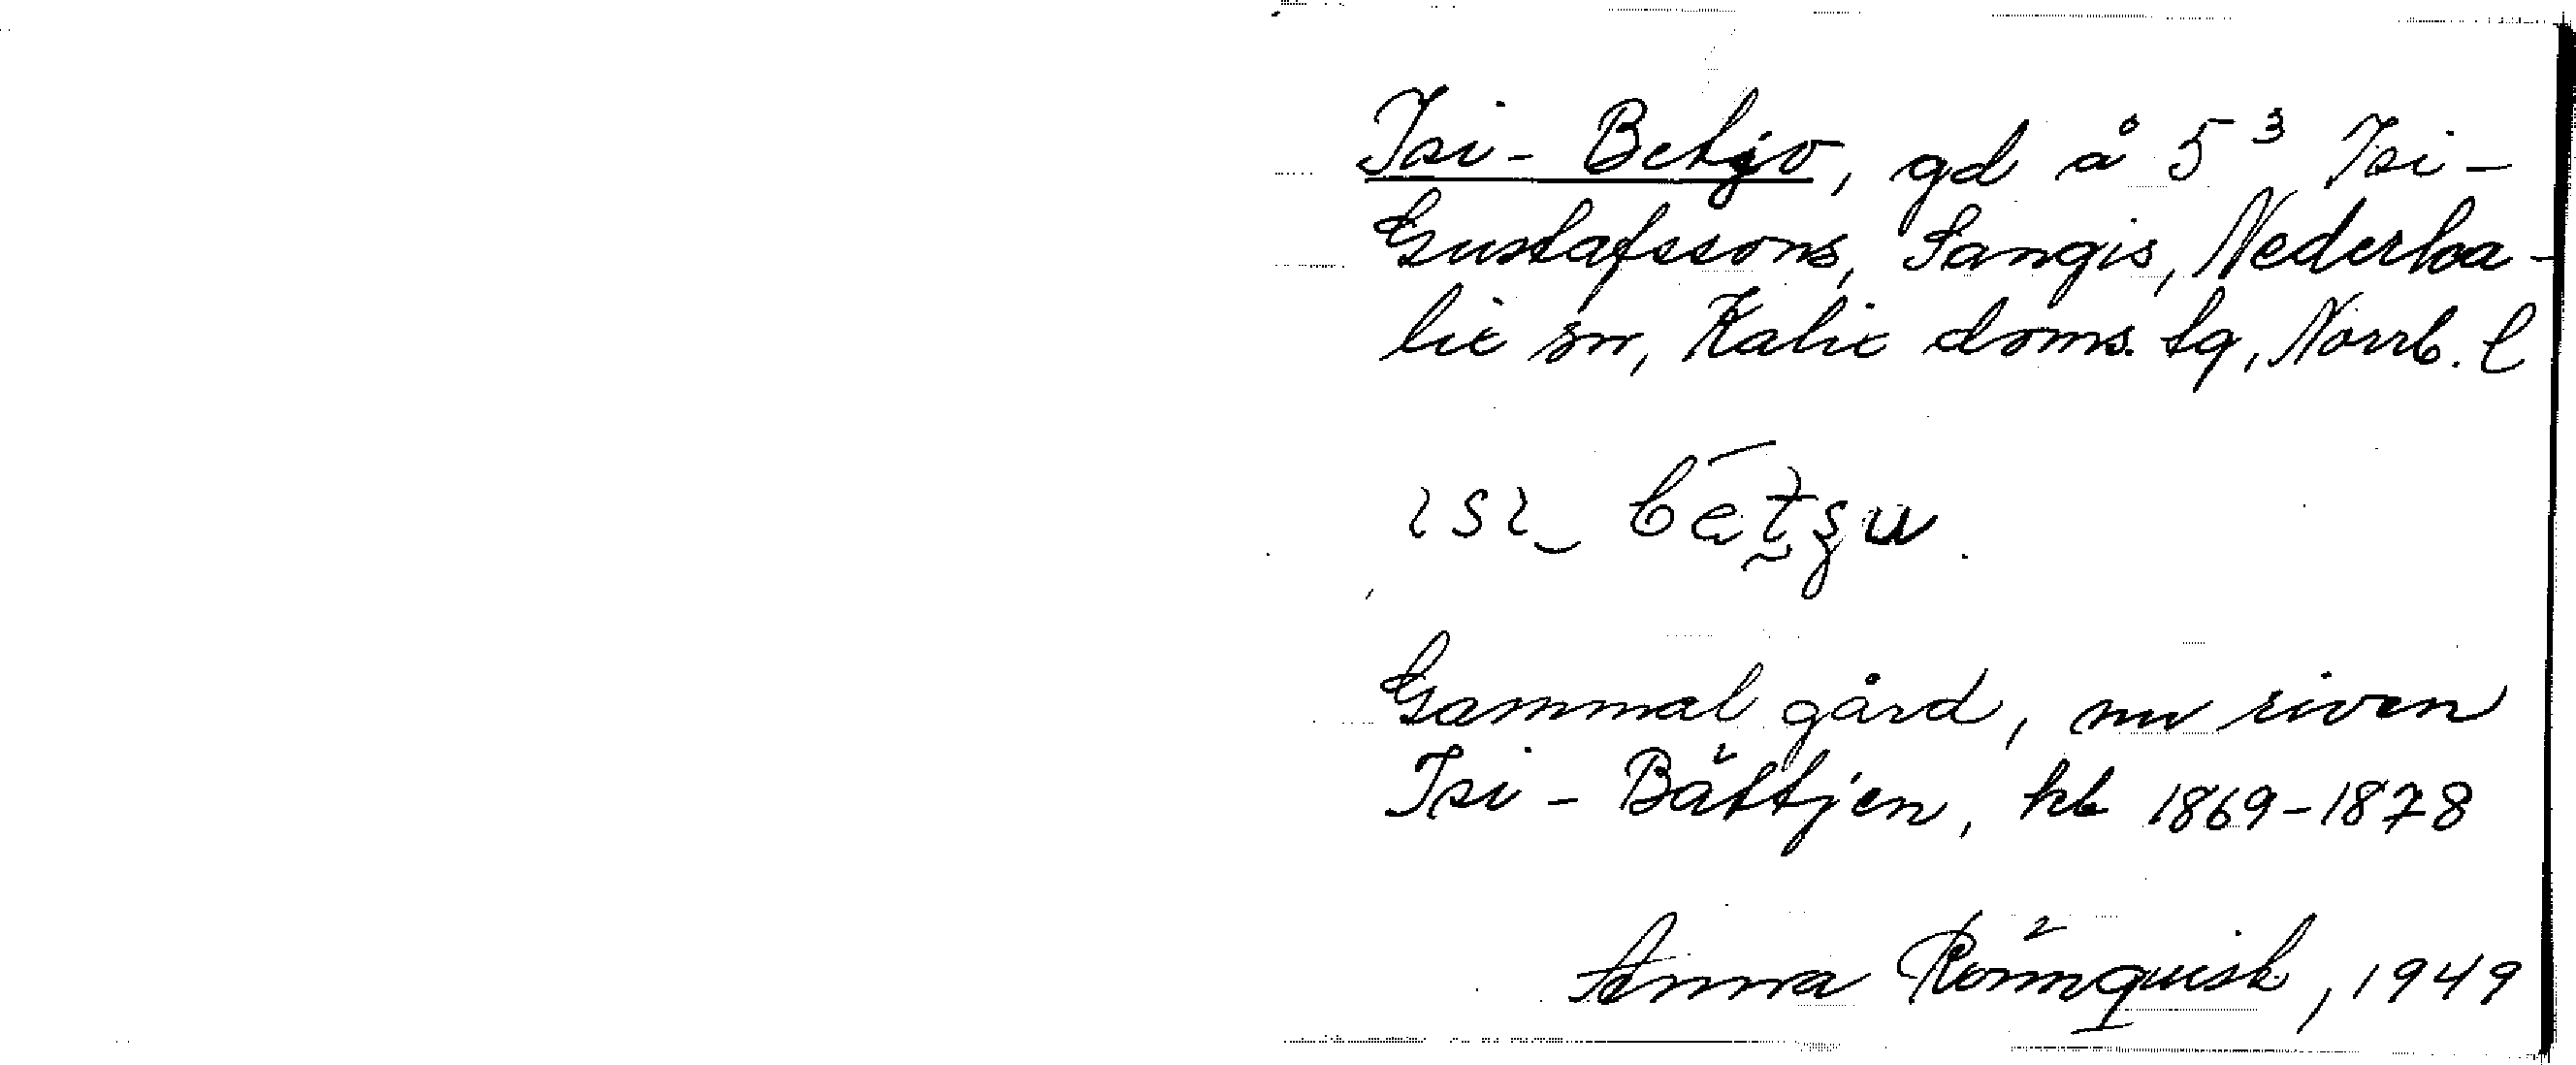 Isi-Betjo, gd å 5³ Isi-
Gustafssons, Sangis, Nederka-
lix sn, Kalix doms. tg, Norrb. l
Gammal gård, nu riven
Isi-Bättjen, kb 1869-1878
Anna Rönnquist, 1949